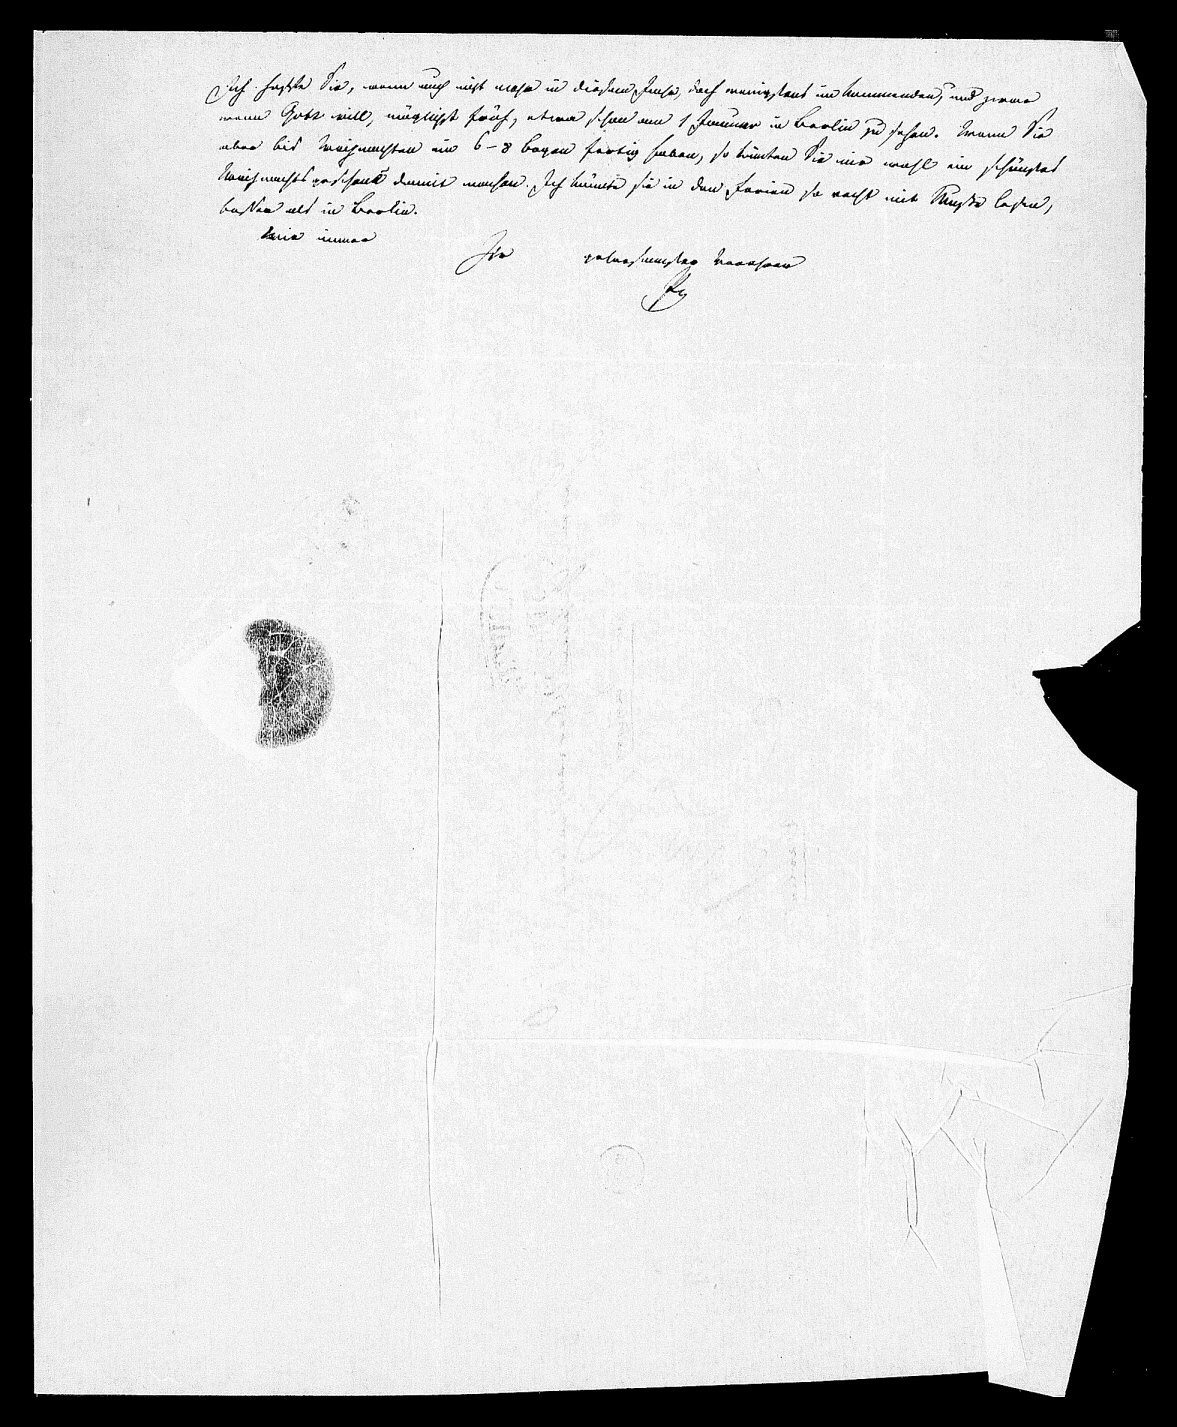 Ich hoffe Sie, wenn auch nicht mehr in diesem Jahre, doch wenigstens im kommenden, und zwar
wenn Gott will, möglichst früh, etwa schon am 1 Januar in Berlin zu sehen. Wenn Sie
aber bis Weihnachten ein 6–8 Bogen fertig haben, so könnten Sie mir wohl ein schönstes
Weihnachtsgeschenk damit machen. Ich könnte sie in den Ferien so recht mit Muße lesen,
besser als in Berlin.
Wie immer
Ihr gehorsamster Verehrer